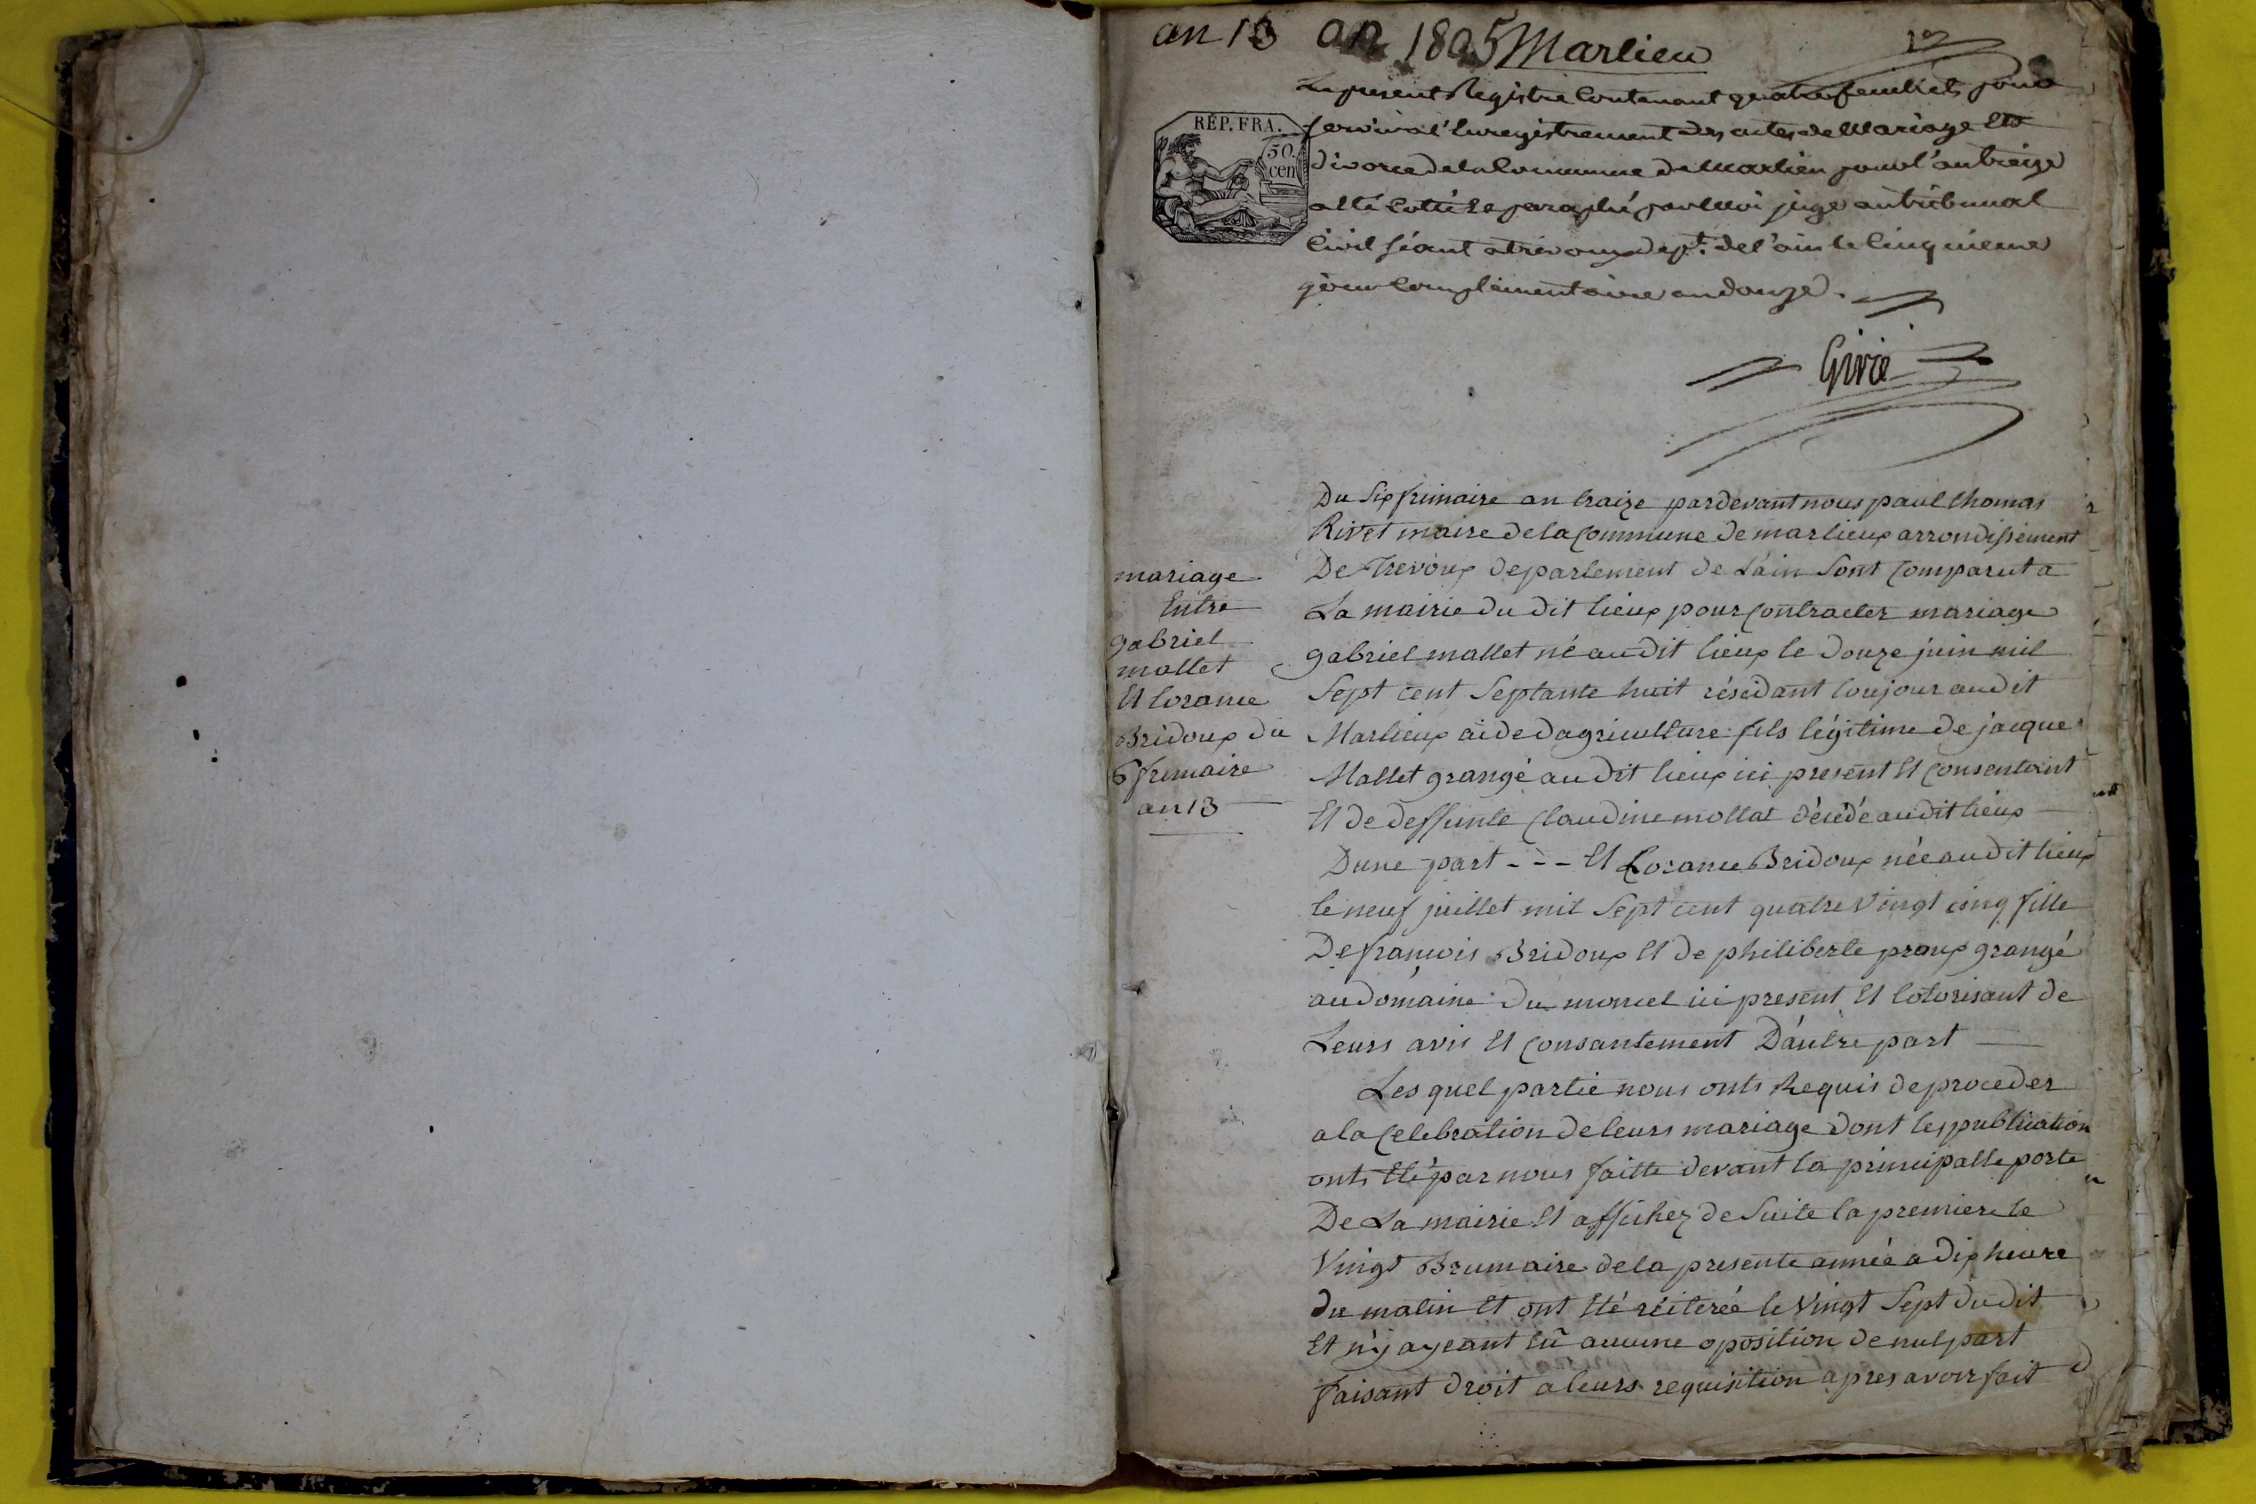 an 13 an 1805 Marlieu
1er
Le present Registre Contenant quatre feuillets pour
servir a l'Enregistrement des actes de Mariage Et
divorce de la Commune de Marlieu pour l'an treize
a été Cotté Et paraphé par Moi juge au tribunal
Civil séant a trevoux dept. de l'ain le Cinquieme
jour Complementaire an douze.
REP. FRA.
50.
cen
Givre
Du Six frimaire an traize pardevant nous paul thomas
Rivet maire de la Commune de marlieux arrondissement
De Trevoux departement de L'ain Sont Comparut a
La mairie du dit lieux pour Contracter mariage
gabriel mallet né au dit lieux le Douze juin mil
Sept cent Septante huit résidant toujour au dit
Marlieux aide dagriculture fils légitime de jacque
Mallet grangé au dit lieux ici present Et Consentant
Et de deffunte Claudine mollat décédé au dit lieux
Dune part - - - Et Lorance Bridoux née au dit lieux
le neuf juillet mil Sept cent quatre Vingt cinq fille
De françois Bridoux Et de philiberte proux grangé
au domaine du moncel ici present Et Cotorisant de
Leurs avis Et Consantement D'autre part
Les quel partie nous onts Requis de proceder
a la Celebration de leurs mariage dont les publication
onts Eté par nous faitte devant la principalle porte
De La mairie Et affichez de Suite la premiere le
Vingt Brumaire de la presente année a Dix heure
du matin Et ont Eté réiterée le Vingt Sept du dit
Et n'y ayeant Eû aucune oposition de nul part
faisant droit a leurs requisition apres avoir fait
mariage
Entre
gabriel
mallet
Et lorance
Bridoux du
6 frimaire
an 13